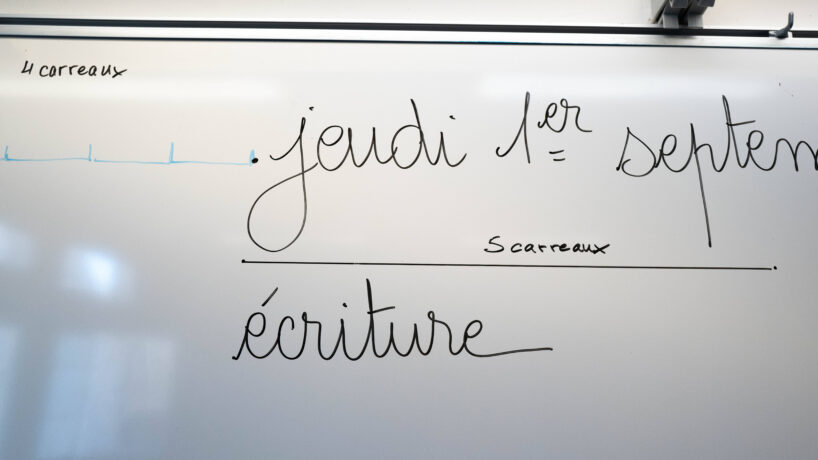 4 carreaux
jeudi 1er septem
5 carreaux
écriture